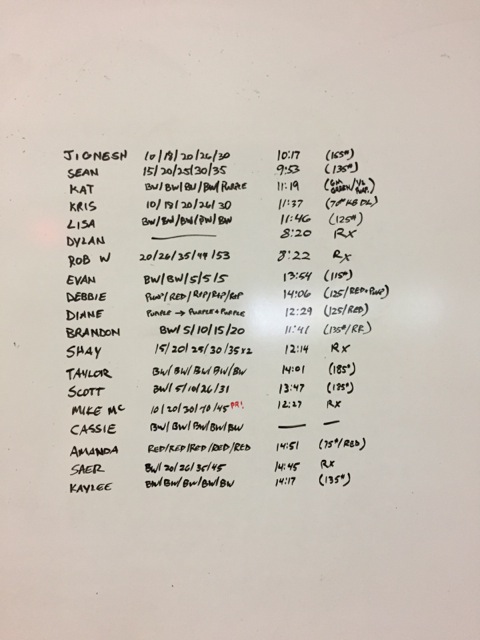 JIGNESH 10/18/20/26/30 10:17 (165#)
SEAN 15/20/25/30/35 9:53 (135#)
KAT BW/BW/BW/BW/PURPLE 11:19
KRIS 10/18/20/26/30 11:37 (70# KB DL)
LISA BW/BW/BW/BW/BW 11:46 (125#)
DYLAN 8:20 RX
ROB W 20/26/35/44/53 8:22 RX
EVAN BW/BW/5/5/5 13:54 (115#)
DEBBIE PURP/RED/R+P/R+P/R+P 14:06 (125/RED+PURP)
DIANE PURPLE → PURPLE+PURPLE 12:29 (125/RED)
BRANDON BW/5/10/15/20 11:41
SHAY 15/20/25/30/35x2 12:14 RX
TAYLOR BW/BW/BW/BW/BW 14:01 (185#)
SCOTT BW/5/10/26/31 13:47 (185#)
MIKE MC 10/20/30/40/45 PR! 12:27 RX
CASSIE BW/BW/BW/BW/BW
AMANDA RED/RED/RED/RED/RED 14:51 (75#/RED)
SAER BW/20/26/35/45 14:45 RX
KAYLEE BW/BW/BW/BW/BW 14:17 (135#)